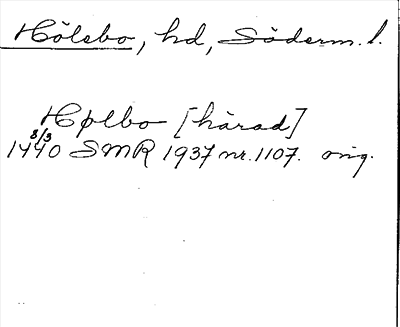 Hölebo, hd, Söderm. l.
Hølbo [härad]
8/3
1440 SMR 1937 nr. 1107. orig.